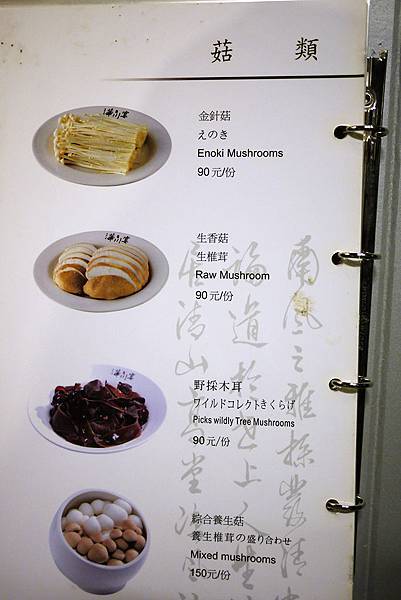 菇 類
金針菇
えのき
Enoki Mushrooms
90元/份
生香菇
生椎茸
Raw Mushroom
90元/份
野採木耳
ワイルドコレクトきくらげ
Picks wildly Tree Mushrooms
90元/份
綜合養生菇
養生椎茸の盛り合わせ
Mixed mushrooms
150元/份